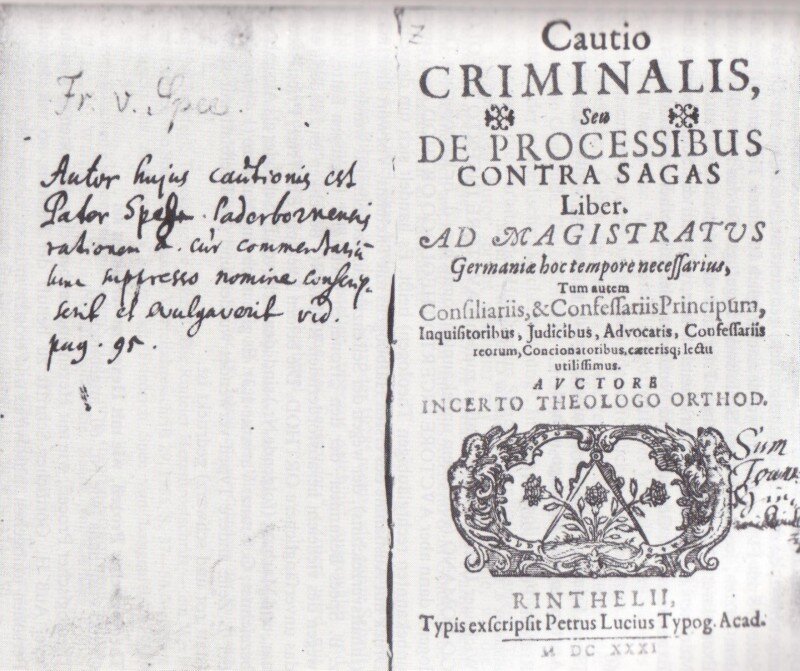 Fr. v. Spee.
Autor hujus cautionis est
Pater Spee. Paderbornensis
rationem cur commentariū
suppresso nomine conscrip-
serit et evulgaverit vid.
pag. 95.
Cautio
CRIMINALIS,
Seu
DE PROCESSIBUS
CONTRA SAGAS
Liber.
AD MAGISTRATVS
Germaniæ hoc tempore neceſſarius,
Tum autem
Conſiliariis, & Confeſſariis Principum,
Inquiſitoribus, Judicibus, Advocatis, Confeſſariis
reorum, Concionatoribus, cæterisq; lectu
utiliſſimus.
AVCTORE
INCERTO THEOLOGO ORTHOD.
Sum
RINTHELII,
Typis exſcripſit Petrus Lucius Typog. Acad.
M DC XXXI